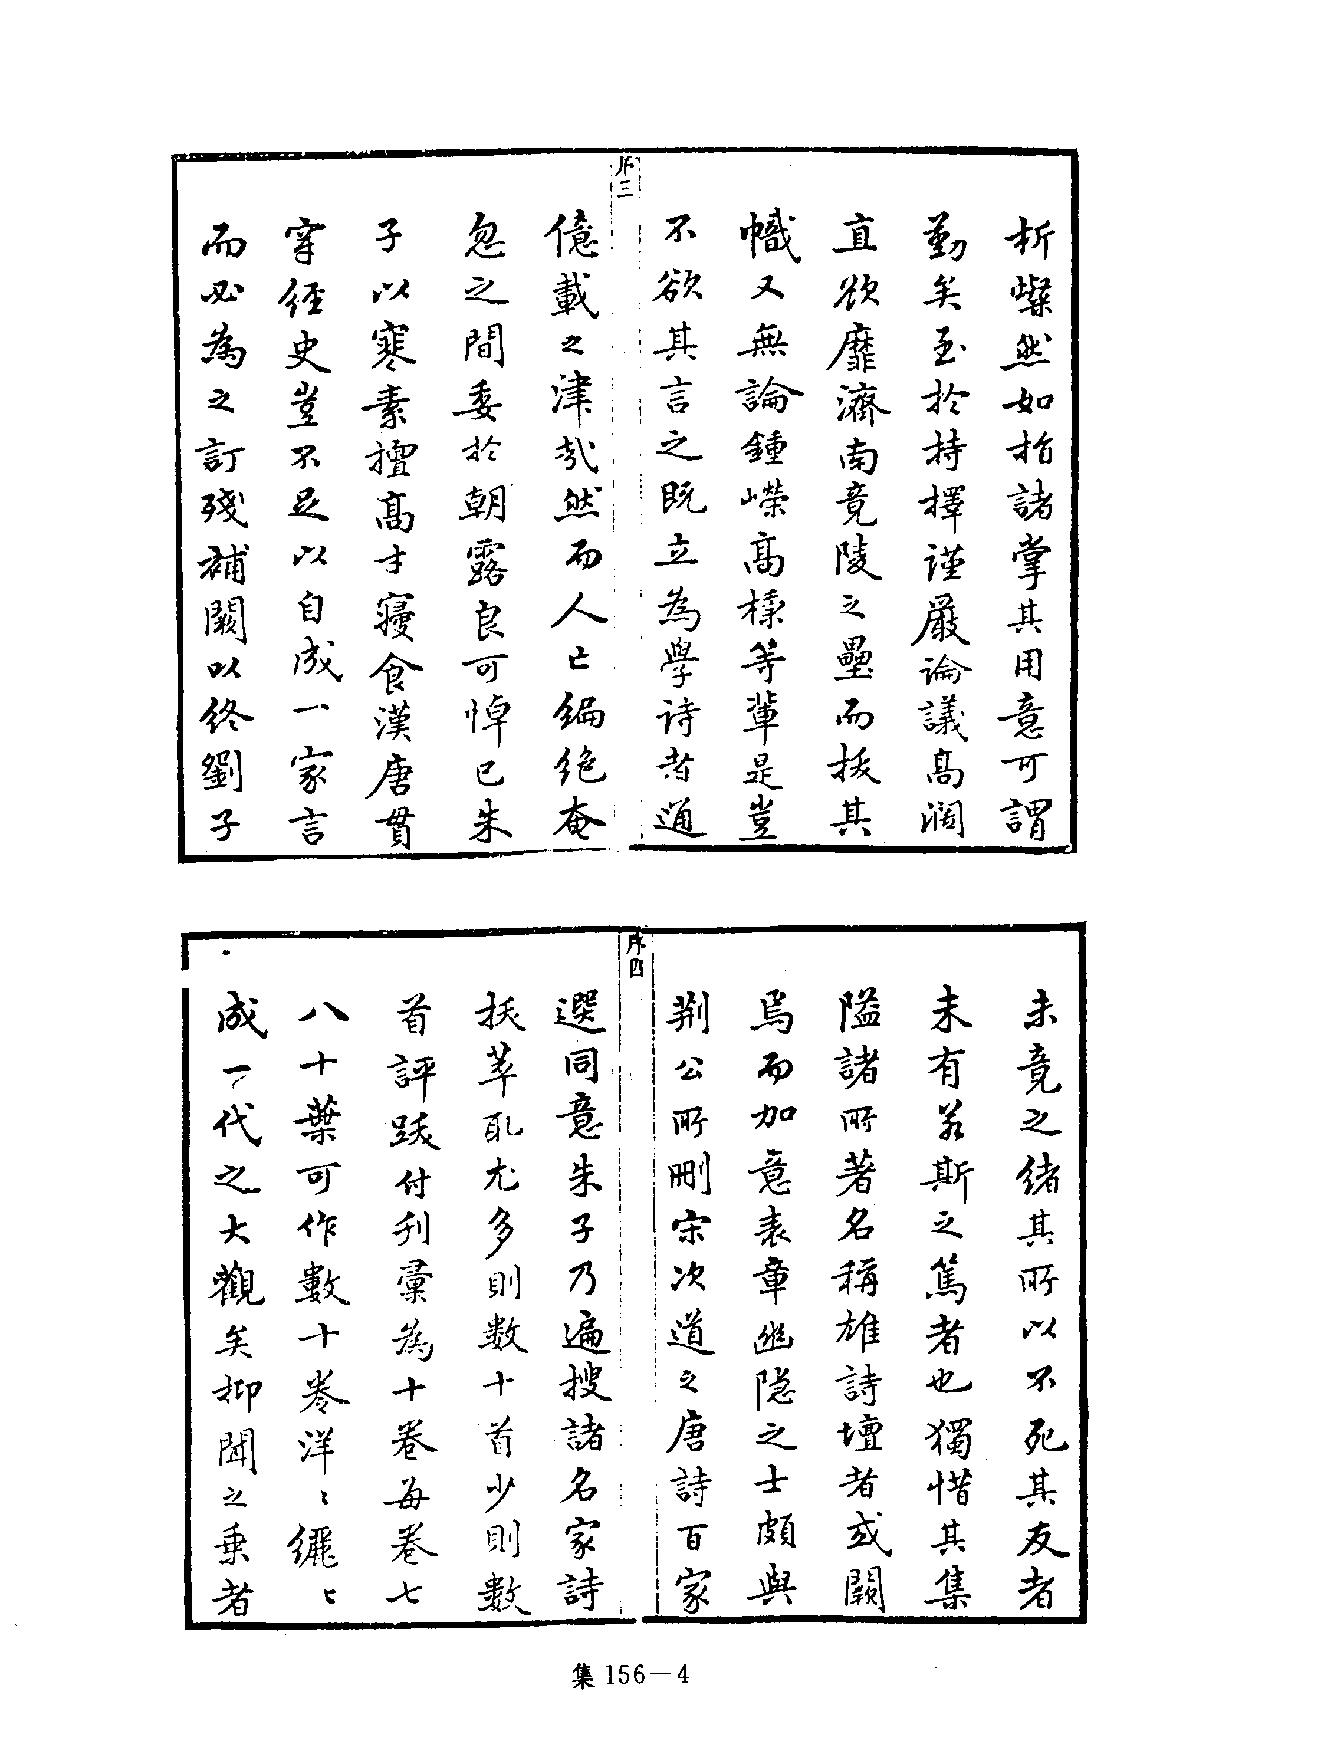 析燦然如指諸掌其用意可謂
勤矣至於持擇謹嚴論議高濶
直欲靡濟南竟陵之壘而拔其
幟又無論鍾嶸高棅等輩是豈
不欲其言之既立為學詩者通
序三
億載之津哉然而人亡編絶奄
忽之間委於朝露良可悼已朱
子以寒素擅高才寢食漢唐貫
穿經史豈不足以自成一家言
而必為之訂殘補闕以終劉子
未竟之緒其所以不死其友者
未有若斯之篤者也獨惜其集
隘諸所著名稱雄詩壇者或闕
焉而加意表章幽隱之士頗與
荆公所刪宋次道之唐詩百家
序四
選同意朱子乃遍搜諸名家詩
拔萃取尤多則数十首少則數
首評跋付刋彙為十卷每卷七
八十葉可作數十卷洋〻纚〻
成一代之大觀矣抑聞之乗者
集 156－4